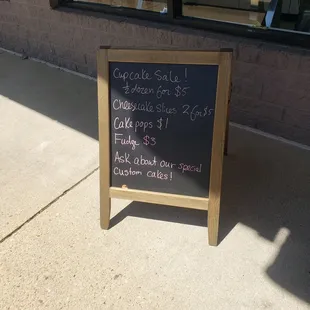 Cupcake Sale!
½ dozen for $5
Cheesecake Slices 2 for $5
Cake pops $1
Fudge $3
Ask about our special
custom cakes!